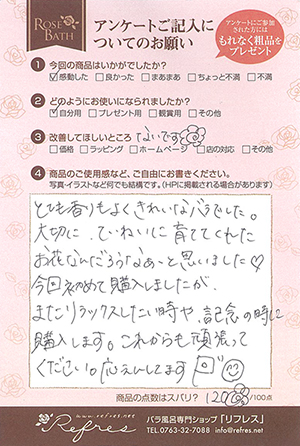 ROSE BATH
アンケートご記入に
ついてのお願い
アンケートにご参加
された方には
もれなく粗品を
プレゼント
1 今回の商品はいかがでしたか?
☑感動した □良かった □まあまあ □ちょっと不満 □不満
2 どのようにお使いになられましたか?
☑自分用 □プレゼント用 □観賞用 □その他
3 改善してほしいところ ないです
□価格 □ラッピング □ホームページ □店の対応 □その他
4 商品のご使用感など、ご自由にお書きください。
写真イラストなど何でも結構です。(HPに掲載される場合があります)
とても香りもよくきれいなバラでした。
大切に、ていねいに育ててくれた
お花なんだろうなあ〜と思いました♡
今回初めて購入しましたが、
またリラックスしたい時や、記念の時に
購入します。これからも頑張って
ください。応えんしてます
商品の点数はズバリ? 120 /100点
www.refres.net
Refres
バラ風呂専門ショップ「リフレス」
TEL.0763-32-7088 info@refres.net